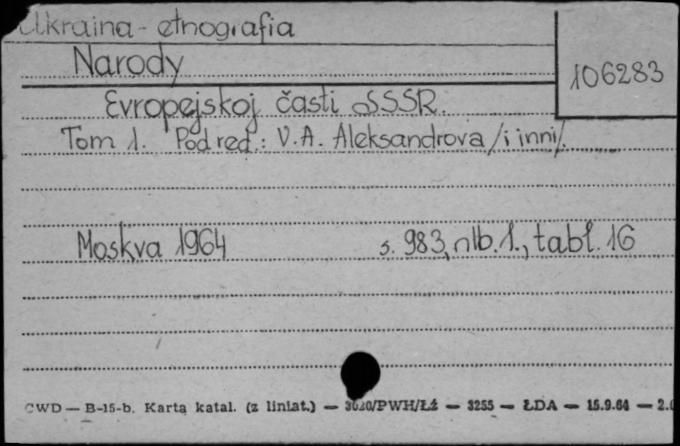 Ukraina - etnografia
Narody
106283
Evropejskoj časti SSSR.
Tom 1. Pod red.: V.A. Aleksandrova /i inni/.
Moskva 1964 s. 983, nlb. 1., tabl. 16
CWD — B-15-b. Karta katal. (z liniat.) — 3020/PWH/Łź — 3255 — ŁDA — 15.9.64 —